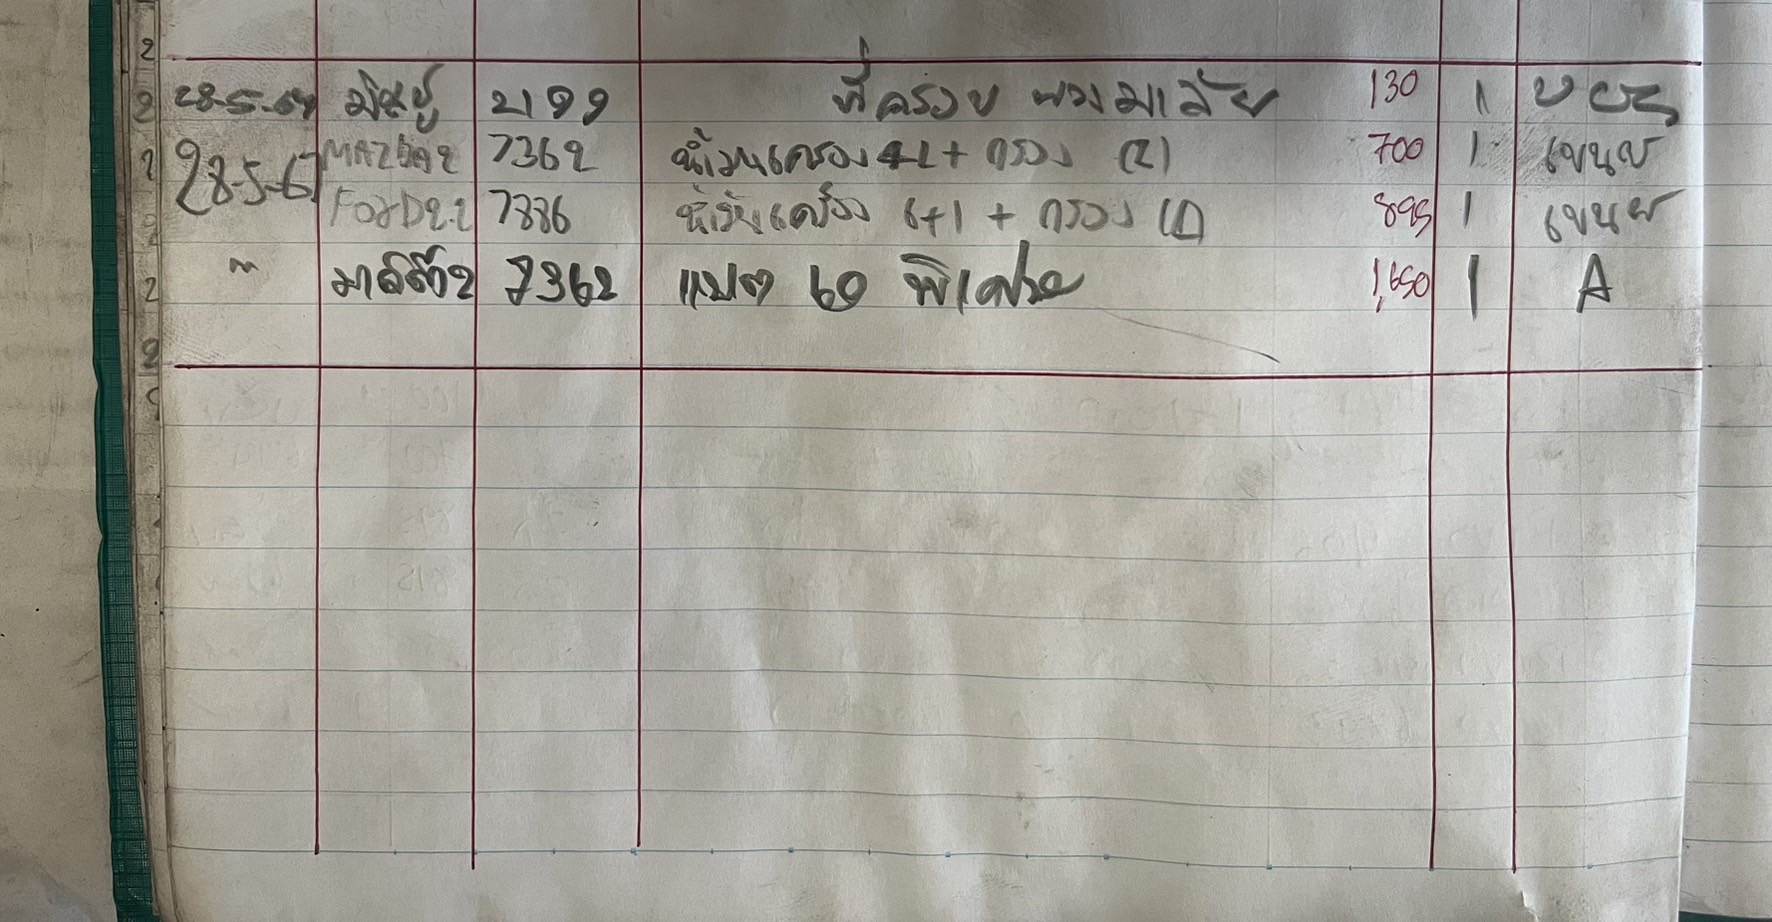 28-5-67 มิตซู 2199 ที่ครอบ พวงมาลัย 130 1
28-5-67 MAZDA2 7362 น้ำมันเครื่อง 4L + กรอง (2) 700 1
FORD2.2 7886 น้ำมันเครื่อง 6+1 + กรอง (1) 895 1
" มาสด้า2 7362 แบต 60 พิเศษ 1,650 1 A